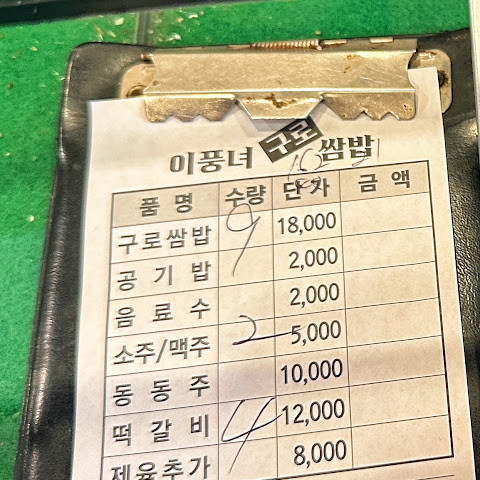 이풍녀 구로 쌈밥
품명 수량 단가 금액
구로쌈밥 9 18,000
공기밥 2,000
음료수 2,000
소주/맥주 2 5,000
동동주 10,000
떡갈비 4 12,000
제육추가 8,000